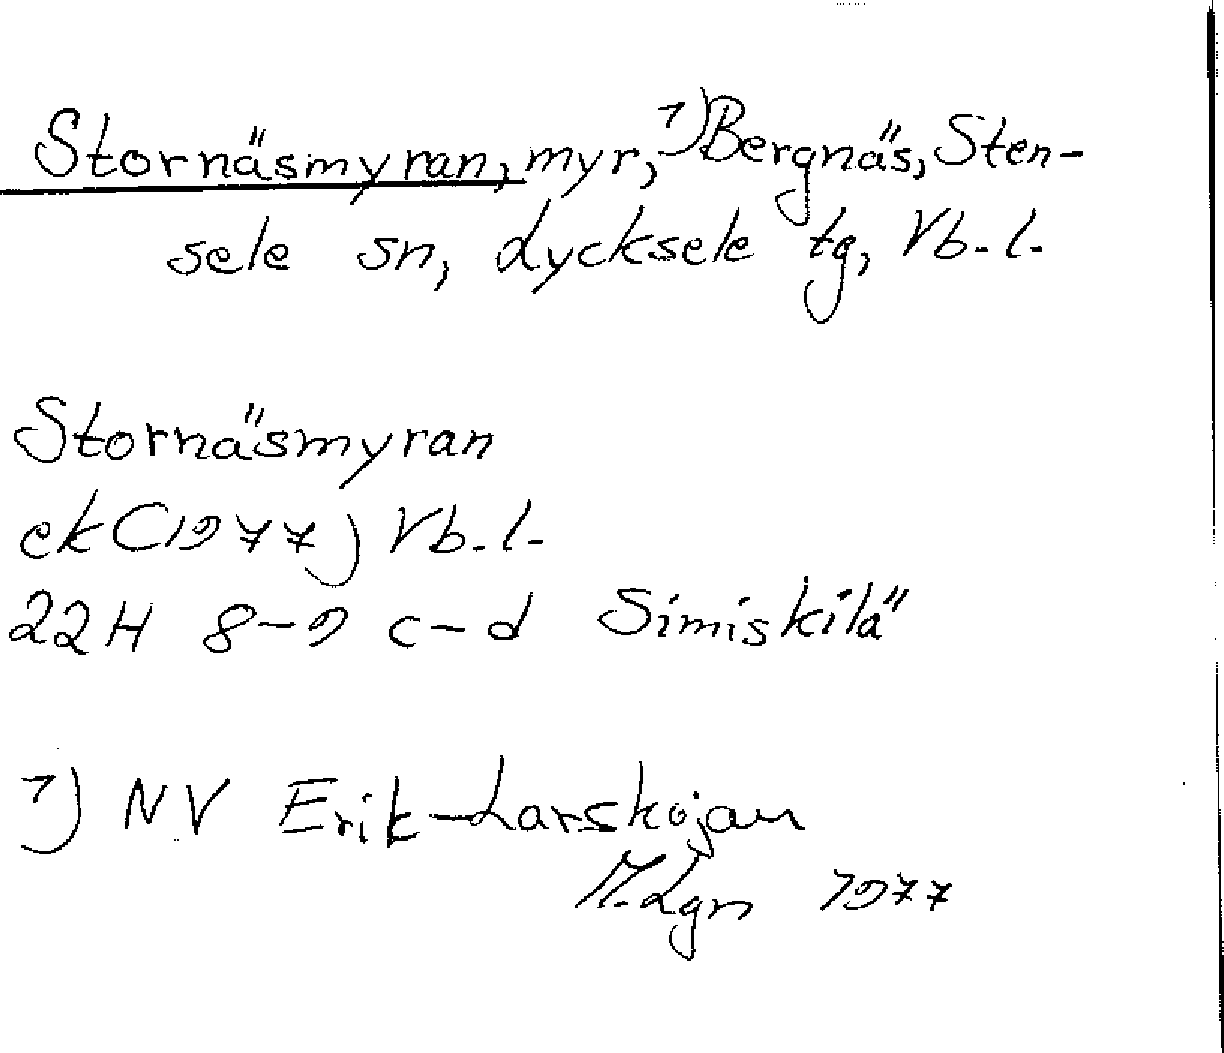 Stornäsmyran, myr, 1) Bergnäs, Sten-
sele sn, Lycksele tg, Vb. l.
Stornäsmyran
ek (1977) Vb. l.
22H 8-9 c-d Simiskilä
1) NV Erik-Larskojan
M. Lgn 1977